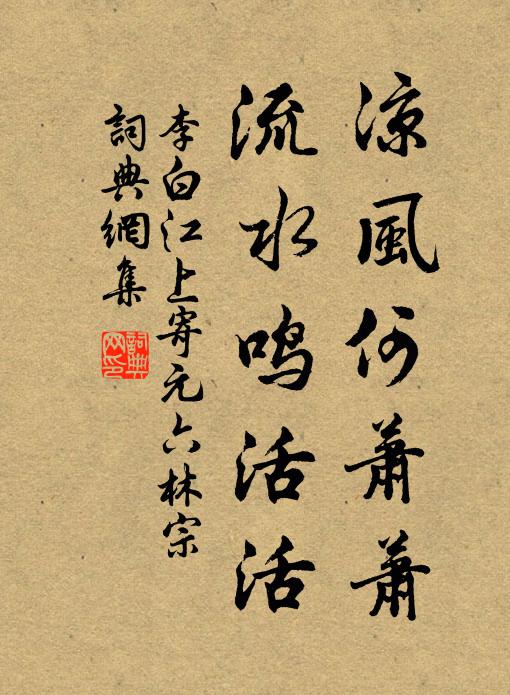 凉風何蕭蕭
流水鸣活活
李白江上寄元六林宗
詞典網集
詞典网印